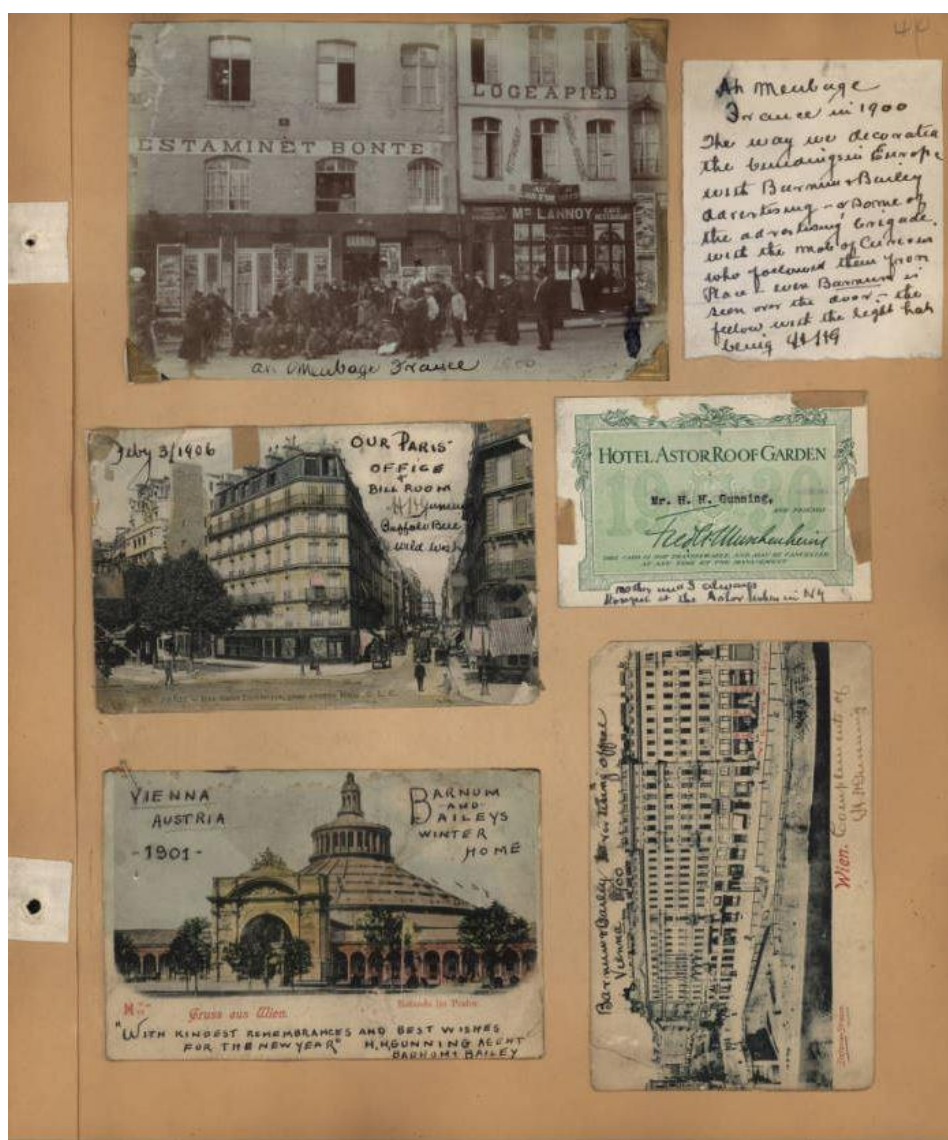 LOGE A PIED
ESTAMINET BONTE
AU
Mn LANNOY
CAFE
RESTAURANT
BARNUM
an Meubage France 1900
An Meubage
France in 1900
The way we decorated
the buildings in Europe
with Barnum & Bailey
advertising - & some of
the advertising brigade.
with the mob of Curious
who followed them from
Place - even Barnum is
seen over the door - the
fellow with the light hat
being HHG
Feby 3/1906
OUR PARIS
OFFICE
&
BILL ROOM
HH Gunning
Buffalo Bill
Wild West
HOTEL ASTOR ROOF GARDEN
1920
Mr. H. H. Gunning,
AND FRIENDS
Fred'k A Muschenheim
THIS CARD IS NOT TRANSFERABLE, AND MAY BE CANCELLED
AT ANY TIME BY THE MANAGEMENT
mother and I always
at the Astor when in NY
VIENNA
AUSTRIA
-1901-
BARNUM
-AND-
BAILEYS
WINTER
HOME
Gruss aus Wien.
Rotunde im Prater.
"WITH KINDEST REMEMBRANCES AND BEST WISHES
FOR THE NEW YEAR" H.H.GUNNING AGENT
BARNUM & BAILEY
Barnum & Bailey advertising office
Vienna 1900
Wien.
Compliments of
HH Gunning